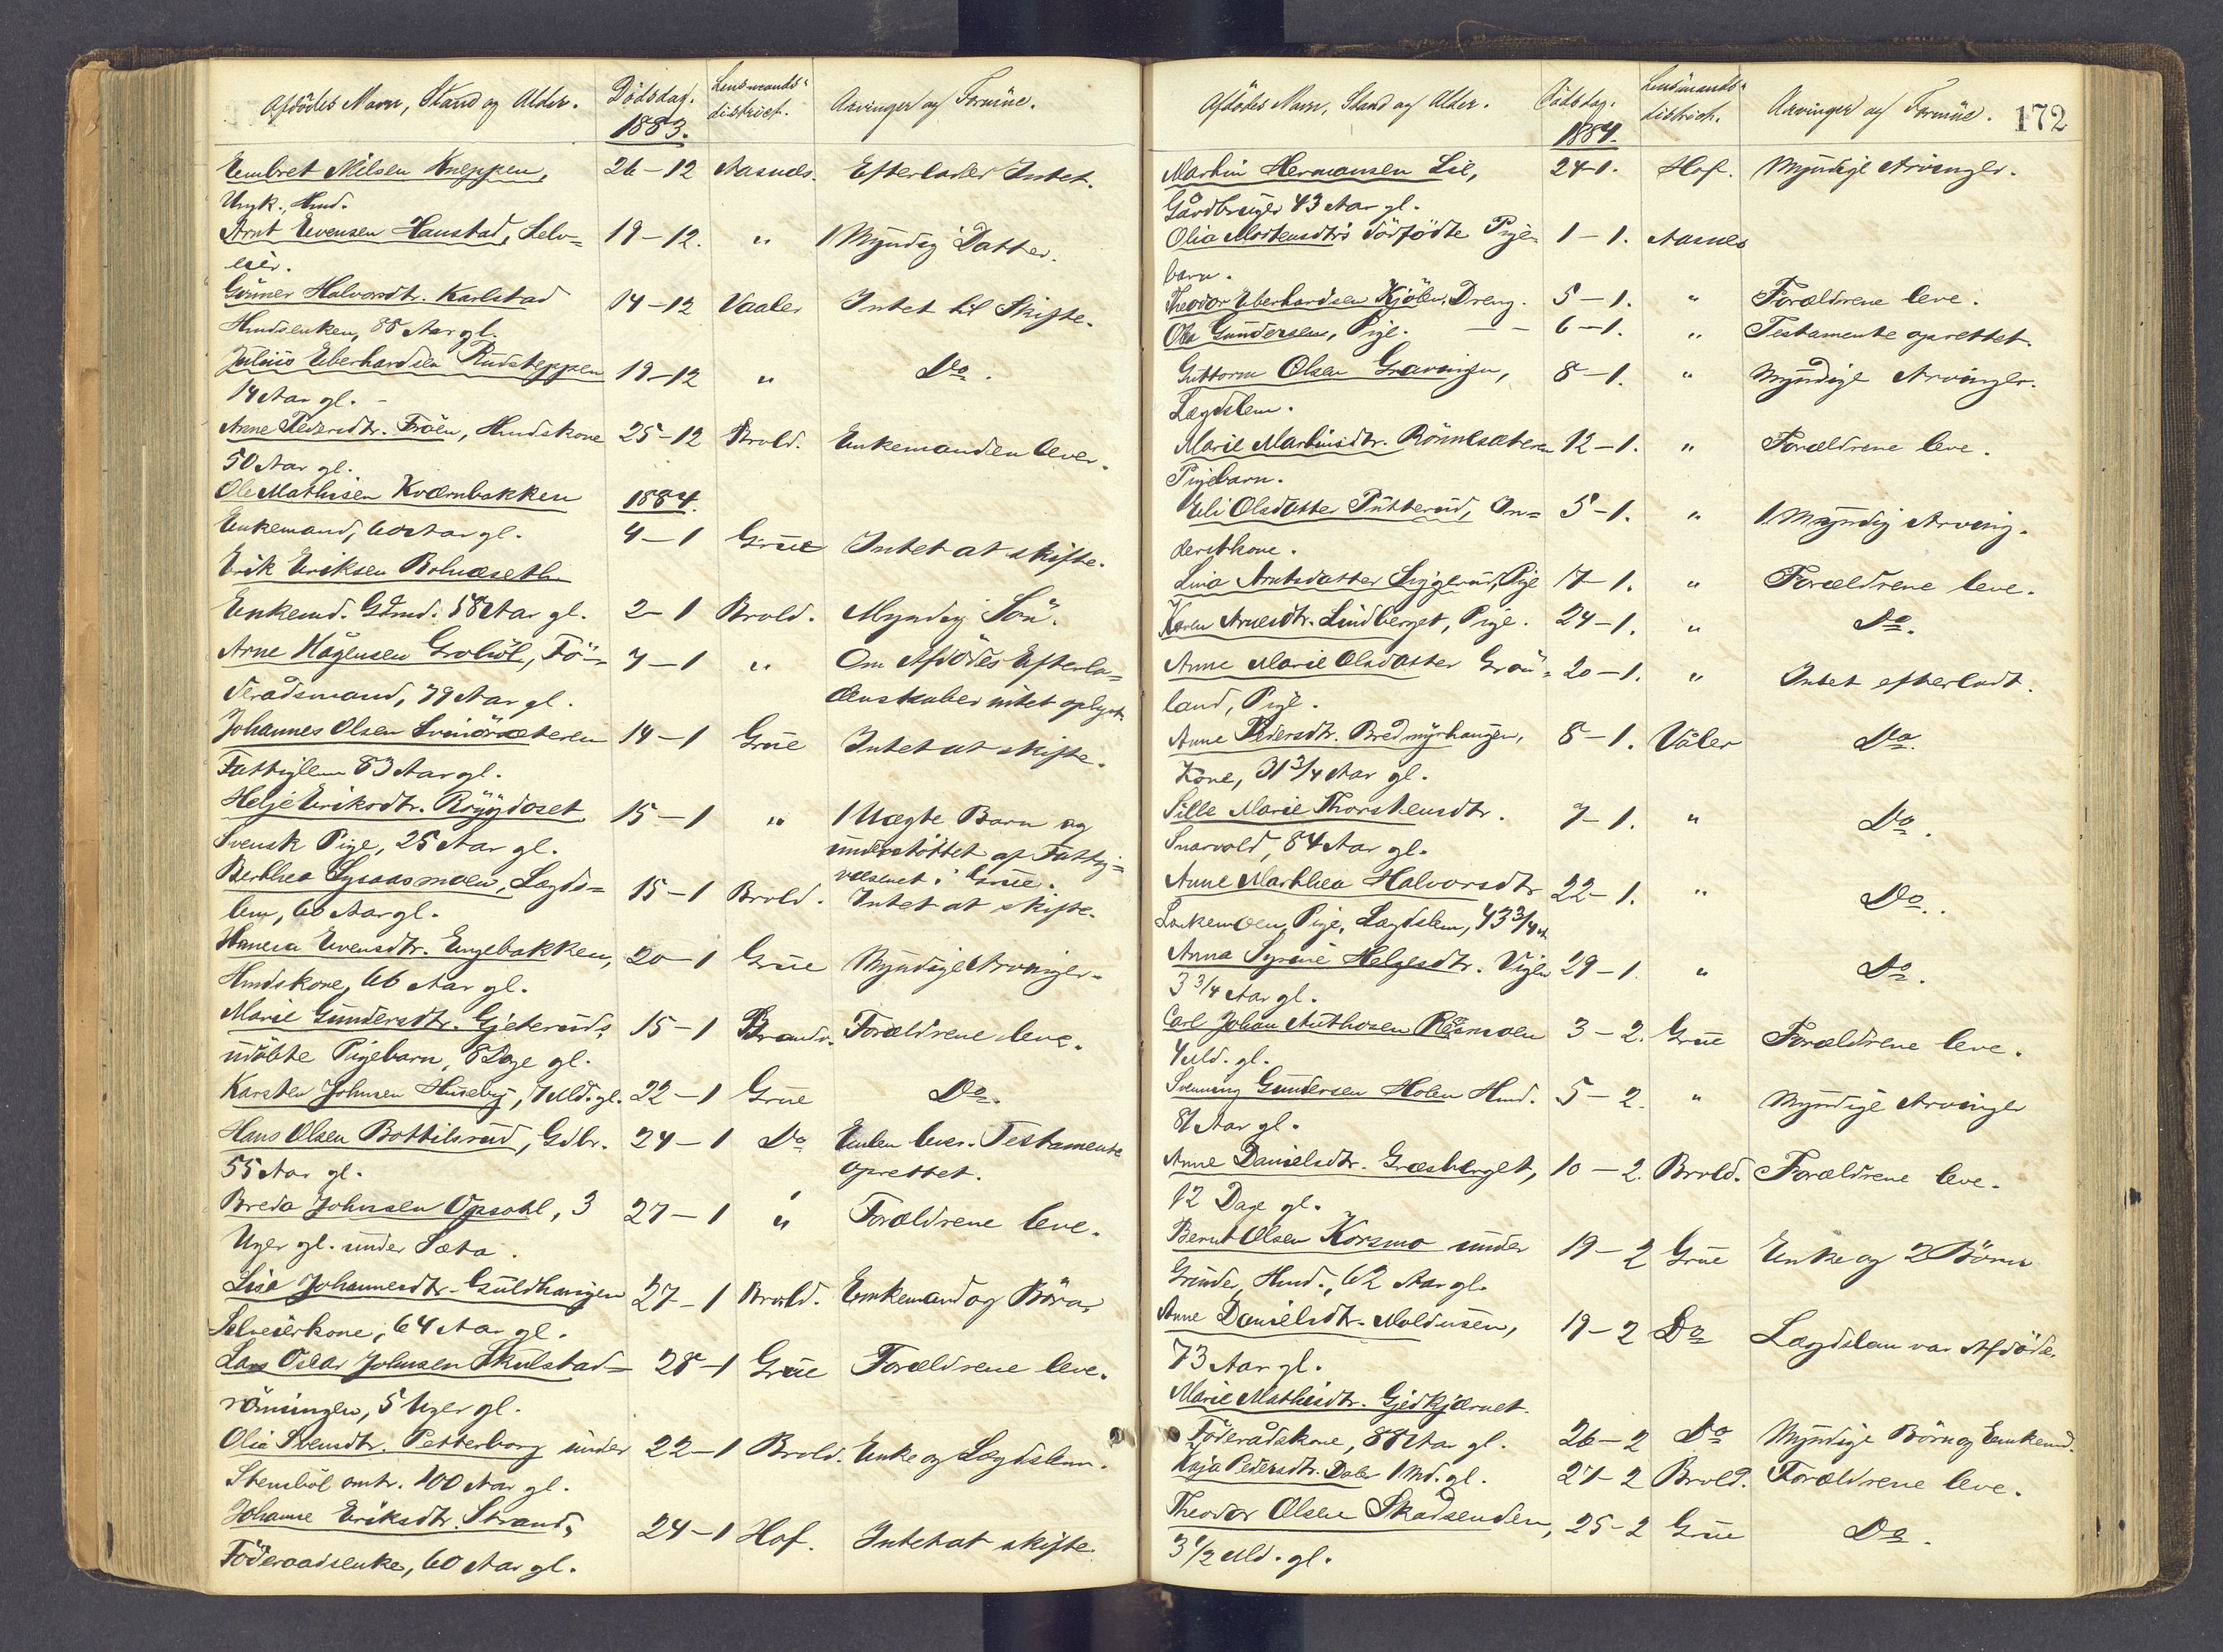 Afdödes Navn, Stand og Alder. Dödsdag. Lensmands- Arvinger og Formue.
1883. district.
Embret Nilsen Kneppen, 26-12 Aasnes. Efterlader Intet.
Ungk., Hmd.
Arnt Evensen Haustad, Selv= 19-12. " 1 Myndig Datter.
eier.
Gunner Halvorsdtr. Karlstad 14-12 Vaaler Intet til Skifte.
Hmdsenken, 88 Aar gl.
Julius Eberhardsen Rudsteppen 19-12 " Do.
14 Aar gl. -
Anne Pedersdtr. Fröen, Hmdskone 25-12 Brvld. Enkemanden lever.
50 Aar gl.
Ole Mathisen Kværnbakken 1884.
Enkemand, 60 Aar gl. 4-1 Grue Intet at skifte.
Erik Eriksen Rolnæseth
Enkemd. Gdmd. 58 Aar gl. 2-1 Brvld. Myndig Sön.
Arne Hågensen Groböl, Fö- 7-1 " Om Afdödes Efterla=
derådsmand, 79 Aar gl. denskaber intet oplyst.
Johannes Olsen Svinösæteren 14-1 Grue Intet at skifte.
Fattiglem 83 Aar gl.
Helje Eriksdtr. Röygdoset 15-1 " 1 Uægte Barn og
Svensk Pige, 25 Aar gl. understöttet af Fattig=
væsenet i Grue.
Berthea Lysaasmoen, Lægds= 15-1 Brvld. Intet at skifte.
lem, 60 Aar gl.
Hanna Evensdtr. Engebakken, 20-1 Grue Myndige Arvinger.
Hmdskone, 66 Aar gl.
Marie Gundersdtr. Gjeterud, 15-1 Brandv. Forældrene leve.
udöbte Pigebarn, 8 Dage gl.
Karsten Johnsen Huseby, 7 Md. gl. 22-1 Grue Do.
Hans Olsen Bottilsrud, Gdbr. 24-1 Do Enken lever. Testamente
55 Aar gl. oprettet.
Breda Johnsen Opsahl, 3 27-1 " Forældrene leve.
Uger gl. under Sæta.
Lisa Johannesdtr. Guldhaugen 27-1 Brvld. Enkemand og Börn
Selveierkone, 64 Aar gl.
Lars Oscar Johnsen Skulstad= 28-1 Grue Forældrene leve.
rönningen, 5 Uger gl.
Olia Svendtr. Petterborg under 22-1 Brvld. Enke og Lægdslem.
Stemböl omtr. 100 Aar gl.
Johanne Eriksdtr. Strand, 24-1 Hof. Intet at skifte.
Föderaadsenke, 60 Aar gl.
172
Afdödes Navn, Stand og Alder. Dödsdag. Lensmands- Arvinger og Formue.
1884. district.
Martin Hermansen Lie, 24-1. Hof. Myndige Arvinger.
Gårdbruger 43 Aar gl.
Olia Mortensdtr's dödfödte Pige- 1-1. Aasnes
barn.
Theodor Eberhardsen Kjölen, Dreng. 5-1. " Forældrene leve.
Ola Gundersen, Pige. 6-1. " Testamente oprettet.
Guttorm Olsen Gravingen, 8-1. " Myndige Arvinger.
Lægdslem.
Marie Martinsdtr. Rönnesæteren 12-1. " Forældrene leve.
Pigebarn.
Eli Olsdatter Putterud, In= 5-1. " 1 Myndig Arving.
derstkone.
Lina Arntsdatter Lyggerud, Pige 17-1. " Forældrene leve.
Karen Arnesdtr. Lindberget, Pige. 24-1. " Do.
Anne Marie Olsdatter Grön= 20-1. " Intet efterladt.
land, Pige.
Anne Pedersdtr. Bredmyrhaugen, 8-1. Våler Do.
Kone, 31 3/4 Aar gl.
Sille Marie Thorstensdtr. 7-1. " Do.
Snarvold, 84 Aar gl.
Anne Marthea Halvorsdtr 22-1. " Do.
Pige, Lægdslem, 43 3/4
Anna Syrine Helgesdtr. Vigen 29-1. " Do.
3 3/4 Aar gl.
Carl Johan Anthosen Rismoen 3-2. Grue Forældrene leve.
4 Md. gl.
Svenning Gundersen Holen Hmd. 5-2. " Myndige Arvinger
81 Aar gl.
Anne Danielsdtr. Græsberget, 10-2. Brvld. Forældrene leve.
12 Dage gl.
Bernt Olsen Korsmo under 19-2 Grue Enke og 2 Börn
Grinder, Hmd., 62 Aar gl.
Anne Danielsdtr. Moldusen, 19-2 Do Lægdslem var Afdöde.
73 Aar gl.
Marie Mathisdtr. Gjedkjærnet.
Föderådskone, 88 Aar gl. 26-2 Do Myndige Börn og Enkemd.
Kaja Pedersdtr. Dalen 1 Md. gl. 27-2 Brvld. Forældrene leve.
Theodor Olsen Skadsenden, 25-2 Grue Do.
3 1/2 Md. gl.